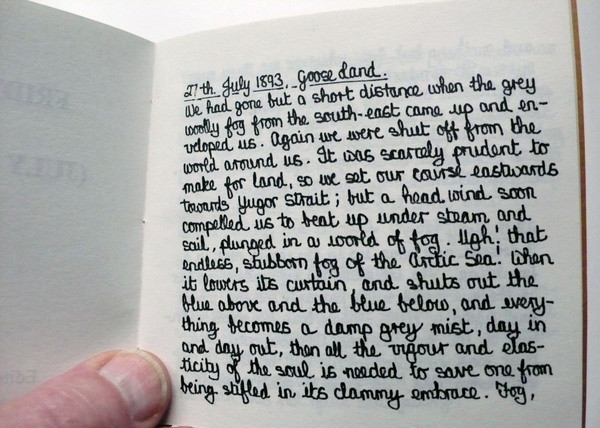 27th. July 1893. Goose Land.
We had gone but a short distance when the grey
woolly fog from the south-east came up and en-
veloped us. Again we were shut off from the
world around us. It was scarcely prudent to
make for land, so we set our course eastwards
towards Yugor Strait; but a head wind soon
compelled us to beat up under steam and
sail, plunged in a world of fog. Ugh! that
endless, stubborn fog of the Arctic Sea! When
it lowers its curtain, and shuts out the
blue above and the blue below, and every-
thing becomes a damp grey mist, day in
and day out, then all the vigour and elas-
ticity of the soul is needed to save one from
being stifled in its clammy embrace. Fog,